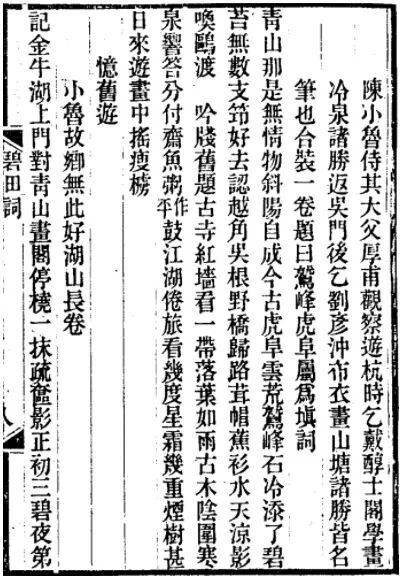 陳小魯侍其大父厚甫觀察遊杭時乞戴醇士閣學畫
冷泉諸勝返吳門後乞劉彥沖布衣畫山塘諸勝皆名
筆也合裝一卷題曰鷲峰虎阜屬爲塡詞
青山那是無情物斜陽自成今古虎阜雲荒鷲峰石冷添了碧
苔無數支笻好去認越角吳根野橋歸路茸帽蕉衫水天涼影
喚鷗渡　吟牋舊題古寺紅墻看一帶落葉如雨古木陰圍寒
泉響答分付齋魚粥作平鼓江湖倦旅看幾度星霜幾重煙樹甚
日來遊畫中搖瘦榜
憶舊遊
小魯故鄉無此好湖山長卷
記金牛湖上門對青山畫閣停橈一抹疏奩影正初三碧夜第
碧田詞
八